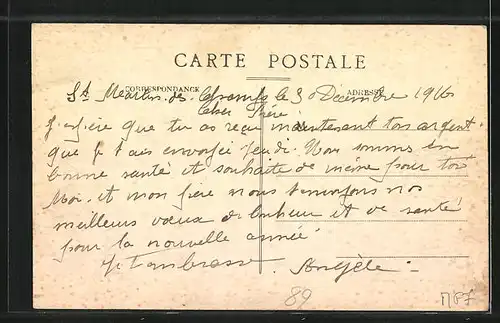 CARTE POSTALE
CORRESPONDANCE ADRESSE
St Martin des Champs le 30 Décembre 1916
Cher Frère
J'espère que tu as reçu maintenant ton argent
que je t'ais envoyée jeudi. Nous sommes en
bonne santé et souhaite de même pour toi
Moi et mon père nous t'envoyons nos
meilleurs vœux de bonheur et de santé
pour la nouvelle année
Je t'embrasse. Angèle
89